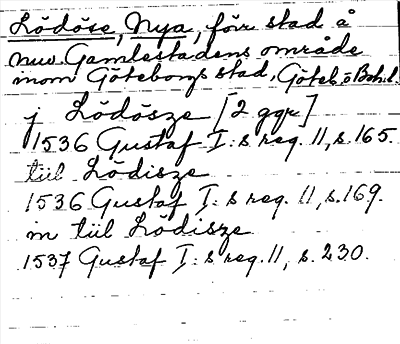 Lödöse, Nya, förr stad å
nuv. Gamlestadens område
inom Göteborgs stad, Göteb. o Boh. l.
j Lödösze [2 ggr]
1536 Gustaf I:s reg. 11, s. 165.
tiil Lödisze
1536 Gustaf I:s reg. 11, s. 169.
in tiil Lödisze
1537 Gustaf I:s reg. 11, s. 230.